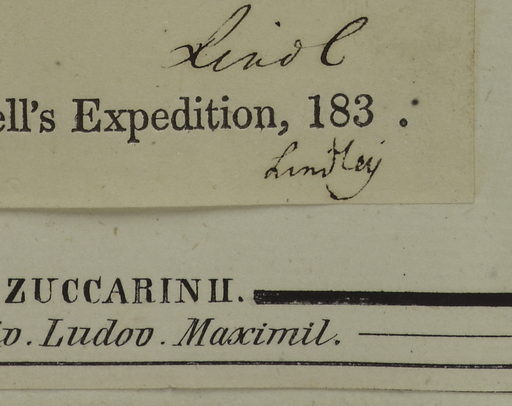 Lindl
ell's Expedition, 183 .
Lindley
ZUCCARINII.
iv. Ludov. Maximil.